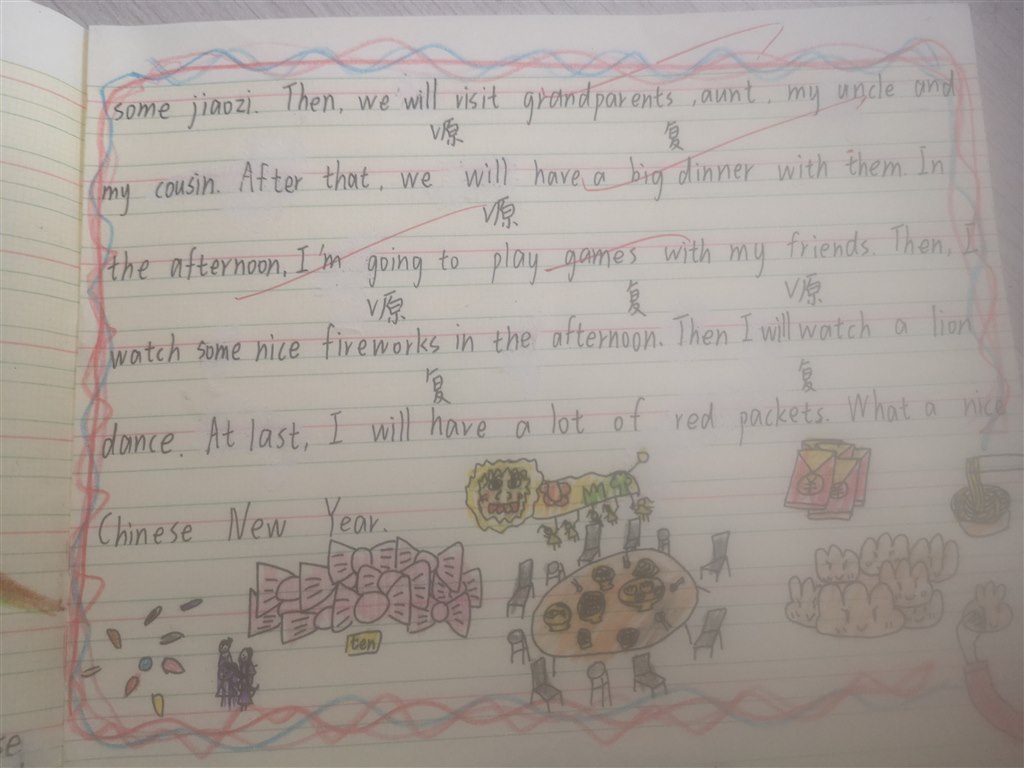 some jiaozi. Then, we will visit grandparents, aunt, my uncle and
V原 复
my cousin. After that, we will have a big dinner with them. In
V原
the afternoon, I'm going to play games with my friends. Then, I
V原 复 V原
watch some nice fireworks in the afternoon. Then I will watch a lion
复 复
dance. At last, I will have a lot of red packets. What a nice
Chinese New Year.
ten